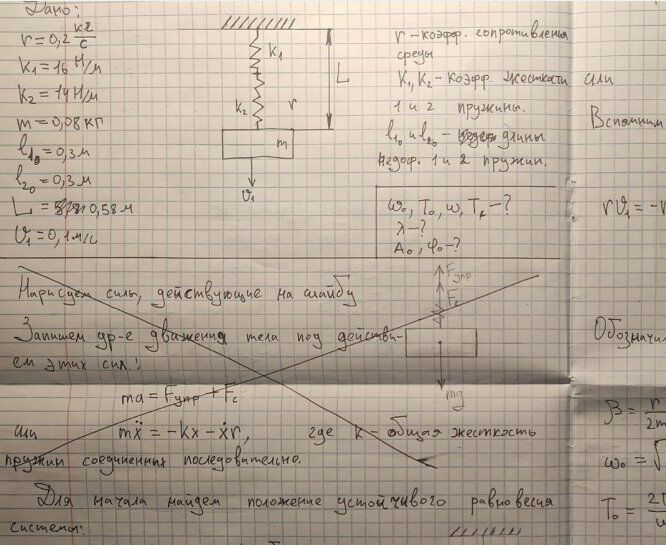 Дано:
r = 0,2 кг/с
K1 = 16 Н/м
K2 = 14 Н/м
m = 0,08 кг
l10 = 0,3 м
l20 = 0,3 м
L = 0,58 м
υ1 = 0,1 м/с
K1
K2
r
L
m
υ1
r - коэфф. сопротивления
среды
K1, K2 - коэфф. жесткасти
1 и 2 пружины.
l10 и l20 - длины
недеф. 1 и 2 пружин.
ω0, T0, ω, T -?
λ-?
A0, φ0-?
или
Вспомним
rυ1 = -
Нарисуем силы, действующие на шайбу
Запишем ур-е движения тела под действи-
ем этих сил:
Fупр
Fc
mg
ma = Fупр + Fc
или mẍ = -kx - ẋr, где k - общая жесткость
пружин соединенных последовательно.
Для начала найдем положение устойчивого равновесия
системы:
Обозначи
β = r/2m
ω0 = √
T0 = 2π/ω